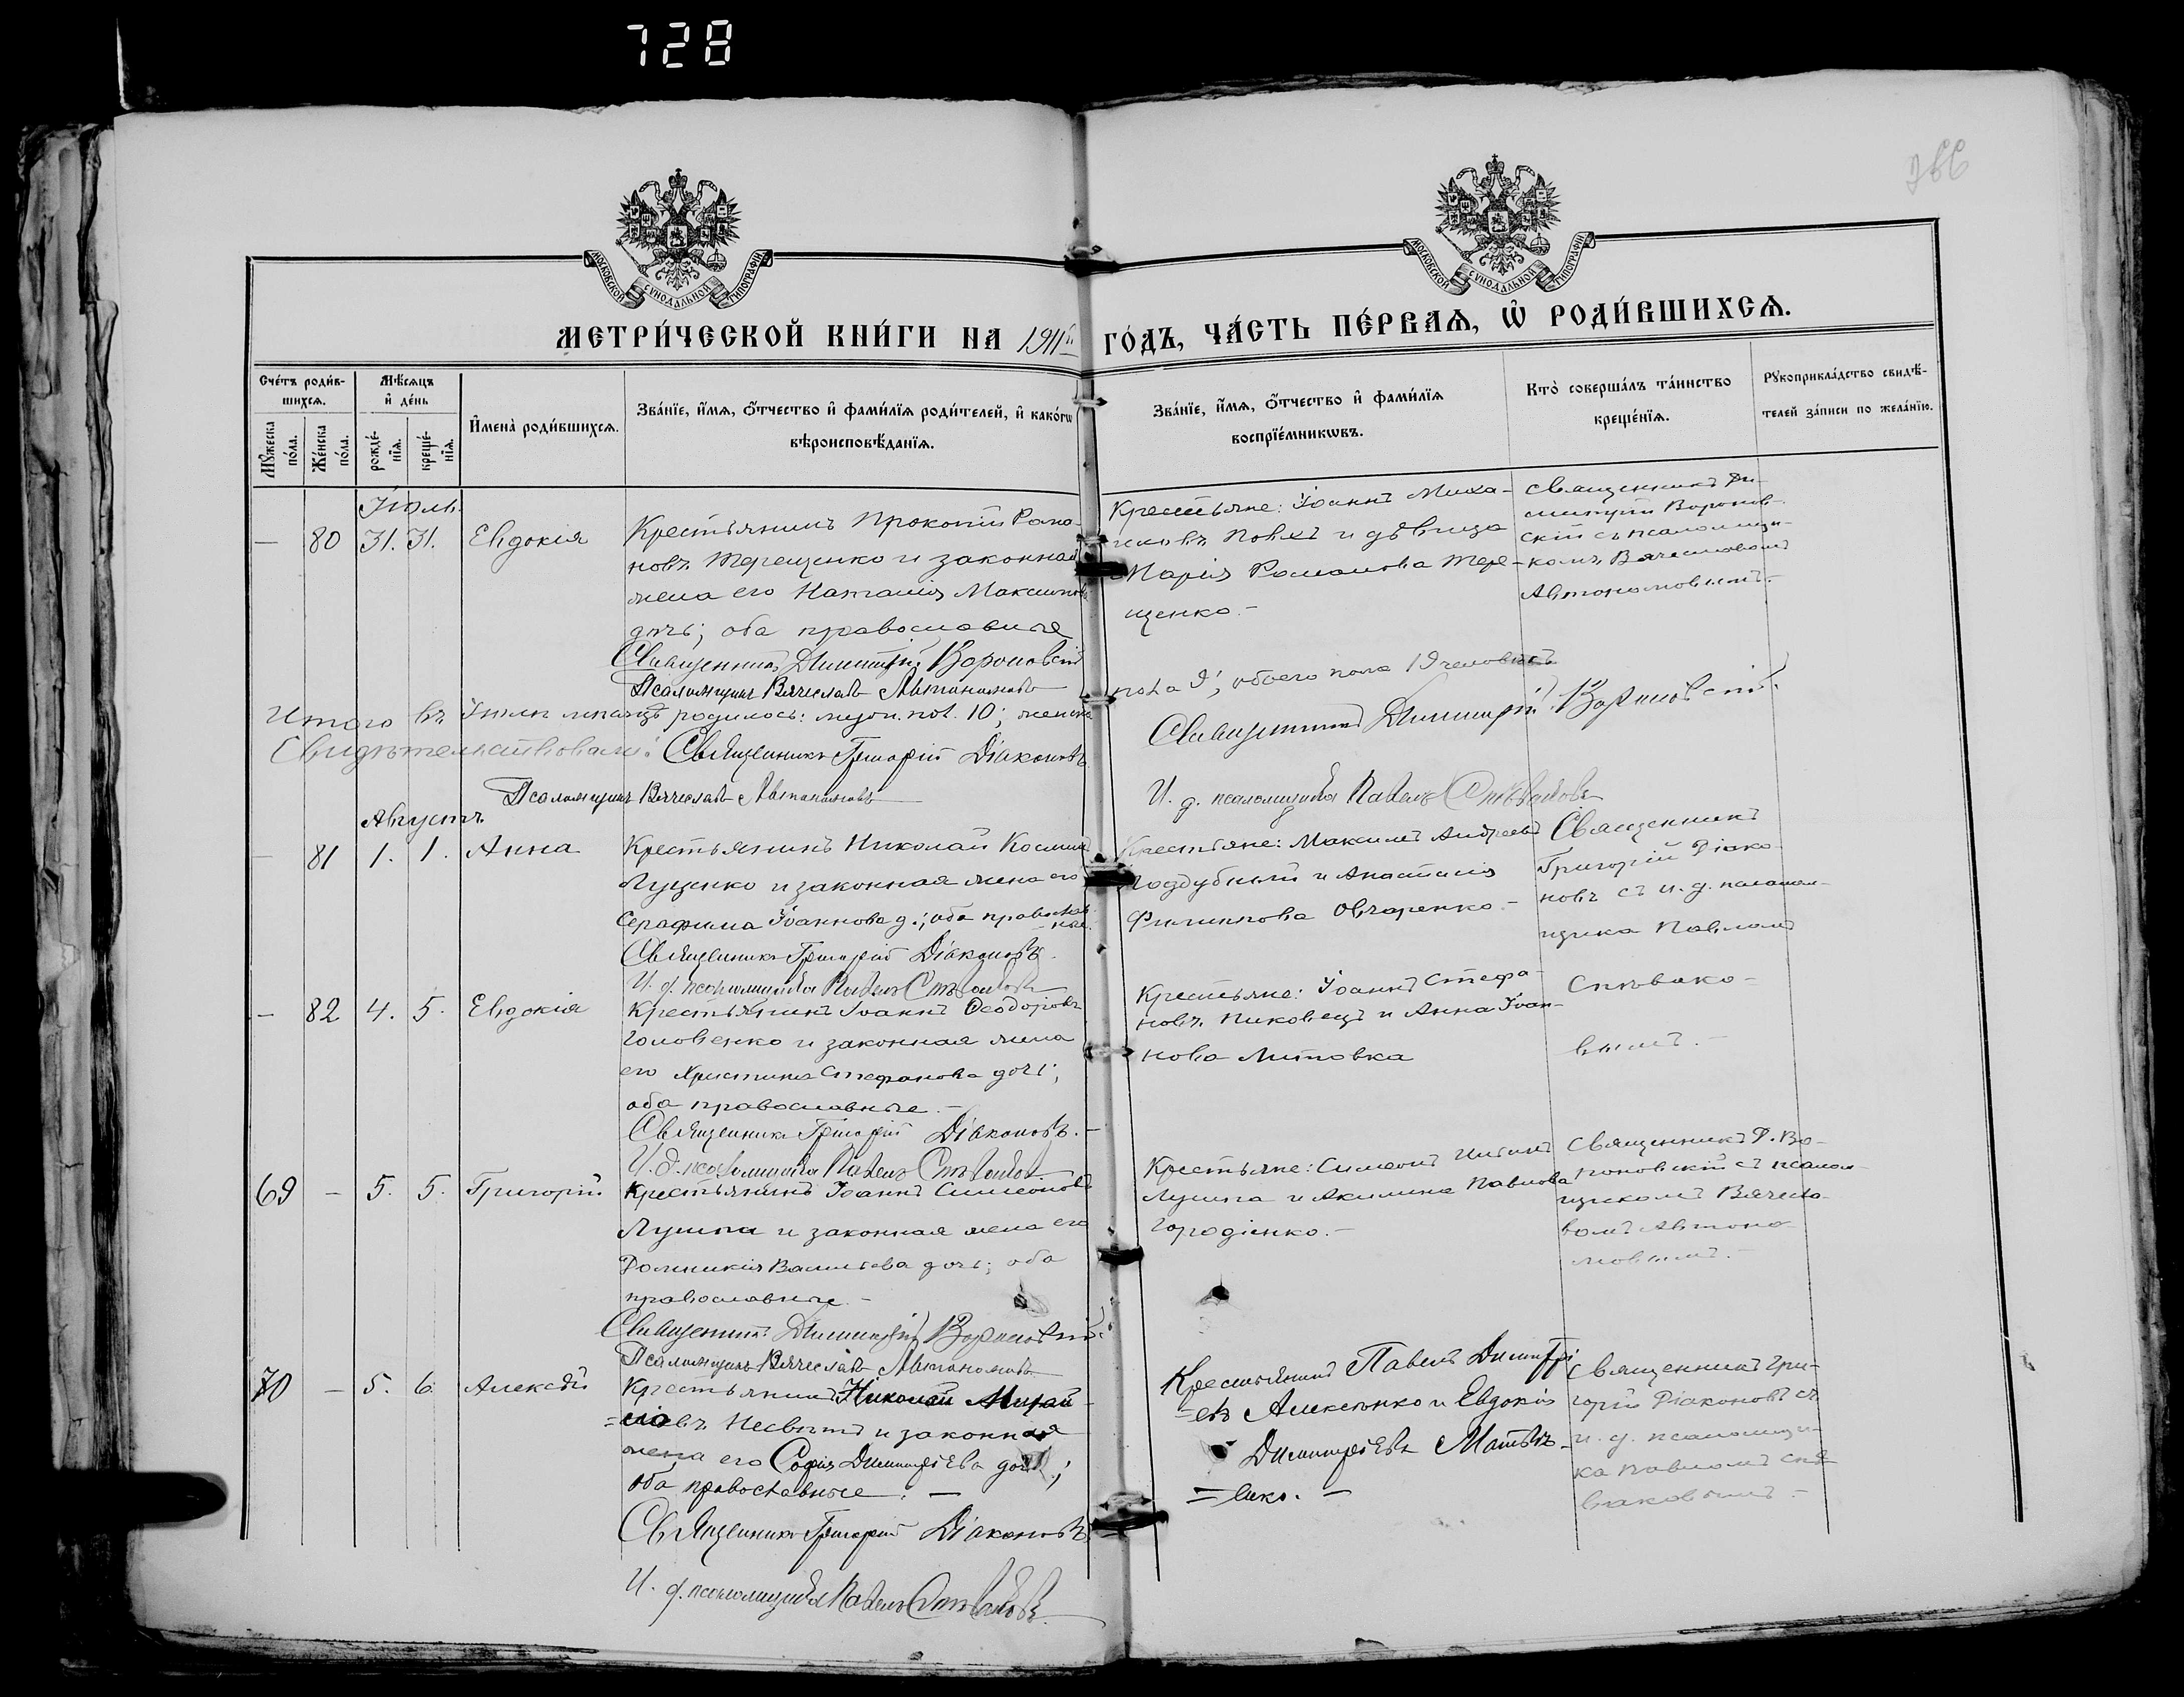 728
366
МОСКОВСКОЙ СѴНОДАЛЬНОЙ ТИПОГРАФІИ
МОСКОВСКОЙ СѴНОДАЛЬНОЙ ТИПОГРАФІИ
МЕТРИ́ЧЕСКОЙ КНИ́ГИ НА 1911й ГО́ДЪ, ЧА́СТЬ ПЕ́РВАѦ, Ѡ҆ РОДИ́ВШИХСѦ.
Сче́тъ роди́в-
шихсѧ.
Мꙋ́жеска по́ла.
Же́нска по́ла.
Мѣ́сѧцъ
и҆ де́нь
рожде́-
нїѧ.
креще́-
нїѧ.
И҆мена̀ роди́вшихсѧ.
Зва́нїе, и҆́мѧ, ѻ҆́тчество и҆ фами́лїѧ роди́телей, и҆ како́гѡ
вѣроисповѣ́данїѧ.
Зва́нїе, и҆́мѧ, ѻ҆́тчество и҆ фами́лїѧ
воспрїе́мникѡвъ.
Кто̀ соверша́лъ та́инство
креще́нїѧ.
Рꙋкоприкла́дство свидѣ́-
телей за́писи по жела́нїю.
Іюль.
— 80 31. 31. Евдокія
Крестьянинъ Прокопій Рома-
новъ Терещенко и законная
жена его Наталія Максимова
дочь; оба православные
Священникъ Димитрій Вороновскій
Псаломщикъ Вячеславъ Автономовъ
Крестьяне: Іоаннъ Миха-
иловъ и дѣвица
Марія Романова Тере-
щенко.-
Священникъ Ди-
митрій Воронов-
скій съ псаломщи-
комъ Вячеславомъ
Автономовымъ.-
Итого въ Іюлѣ мѣсяцѣ родилось: муж. пол. 10; женска
пола 9; обоего пола 19 человѣкъ
Священникъ Димитрій Вороновскій.
Свидѣтельствовали: Священникъ Григорій Діаконовъ.
Псаломщикъ Вячеславъ Автономовъ
И. д. псаломщика Павелъ Спѣваковъ
Августъ.
— 81 1. 1. Анна
Крестьянинъ Николай Косминъ
Луценко и законная жена его
Серафима Іоаннова д.; оба православ-
-ные.
Священникъ Григорій Діаконовъ.
И. д. псаломщика Павелъ Спѣваковъ
Крестьяне: Максимъ Андреевъ
Поддубный и Анастасія
Филиппова Овчаренко.-
Священникъ
Григорій Діако-
новъ съ и. д. псалом-
щика Павломъ
Спѣвако-
вымъ.-
— 82 4. 5. Евдокія
Крестьянинъ Іоаннъ Ѳеодоровъ
Головенко и законная жена
его Христина Стефанова дочь;
оба православные.-
Священникъ Григорій Діаконовъ.-
И. д. псаломщика Павелъ Спѣваковъ
Крестьяне: Іоаннъ Стефа-
новъ Пиковецъ и Анна Іоан-
нова Литовка
69 — 5. 5. Григорій
Крестьянинъ Іоаннъ Симеоновъ
Лушпа и законная жена его
Домникія Васильева дочь; оба
православные.-
Священникъ Димитрій Вороновскій.
Псаломщикъ Вячеславъ Автономовъ
Крестьяне: Симеонъ
Лушпа и Акилина Павлова
Городіенко.-
Священникъ Д. Во-
роновскій съ псалом-
щикомъ Вячесла-
вомъ Автоно-
мовымъ.-
70 — 5. 6. Алексѣй
Крестьянинъ Николай Михай-
=ловъ Несвитъ и законная
жена его Софія Димитріева дочь;
оба православные. —
Священникъ Григорій Діаконовъ.
И. д. псаломщика Павелъ Спѣваковъ.
Крестьянинъ Павелъ Димитрі-
=евъ Алексѣенко и Евдокія
Димитріева Матвѣ-
=енко. —
Священникъ Гри-
горій Діаконовъ съ
и. д. псаломщи-
ка Павломъ Спѣ-
ваковымъ-